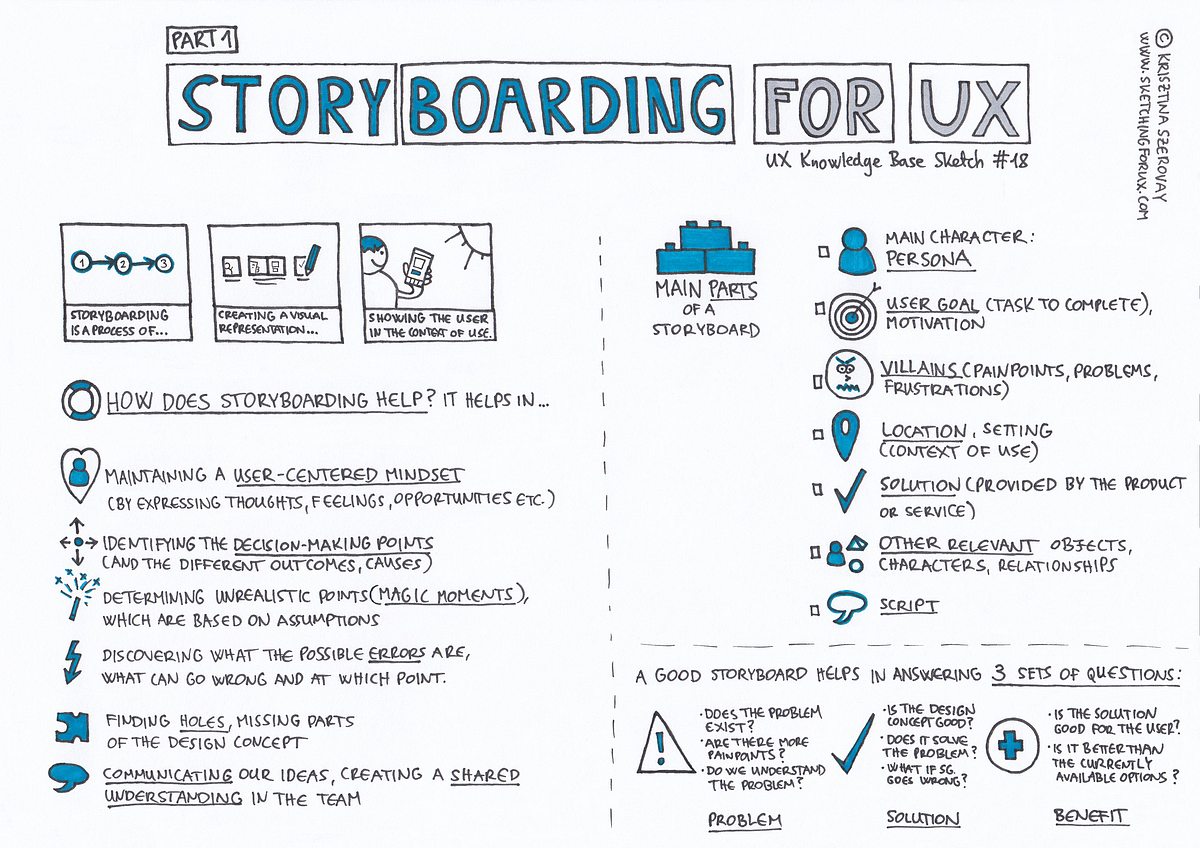 PART 1
STORYBOARDING FOR UX
UX Knowledge Base Sketch #18
© KRISZTINA SZEROVAY
WWW.SKETCHINGFORUX.COM
1 2 3
STORYBOARDING
IS A PROCESS OF...
CREATING A VISUAL
REPRESENTATION...
SHOWING THE USER
IN THE CONTEXT OF USE.
HOW DOES STORYBOARDING HELP? IT HELPS IN...
MAINTAINING A USER-CENTERED MINDSET
(BY EXPRESSING THOUGHTS, FEELINGS, OPPORTUNITIES ETC.)
IDENTIFYING THE DECISION-MAKING POINTS
(AND THE DIFFERENT OUTCOMES, CAUSES)
DETERMINING UNREALISTIC POINTS (MAGIC MOMENTS),
WHICH ARE BASED ON ASSUMPTIONS
DISCOVERING WHAT THE POSSIBLE ERRORS ARE,
WHAT CAN GO WRONG AND AT WHICH POINT.
FINDING HOLES, MISSING PARTS
OF THE DESIGN CONCEPT
COMMUNICATING OUR IDEAS, CREATING A SHARED
UNDERSTANDING IN THE TEAM
MAIN PARTS
OF A
STORYBOARD
MAIN CHARACTER:
PERSONA
USER GOAL (TASK TO COMPLETE),
MOTIVATION
VILLAINS (PAINPOINTS, PROBLEMS,
FRUSTRATIONS)
LOCATION, SETTING
(CONTEXT OF USE)
SOLUTION (PROVIDED BY THE PRODUCT
OR SERVICE)
OTHER RELEVANT OBJECTS,
CHARACTERS, RELATIONSHIPS
SCRIPT
A GOOD STORYBOARD HELPS IN ANSWERING 3 SETS OF QUESTIONS:
· DOES THE PROBLEM
EXIST?
· ARE THERE MORE
PAINPOINTS?
· DO WE UNDERSTAND
THE PROBLEM?
PROBLEM
· IS THE DESIGN
CONCEPT GOOD?
· DOES IT SOLVE
THE PROBLEM?
· WHAT IF SG.
GOES WRONG?
SOLUTION
· IS THE SOLUTION
GOOD FOR THE USER?
· IS IT BETTER THAN
THE CURRENTLY
AVAILABLE OPTIONS?
BENEFIT